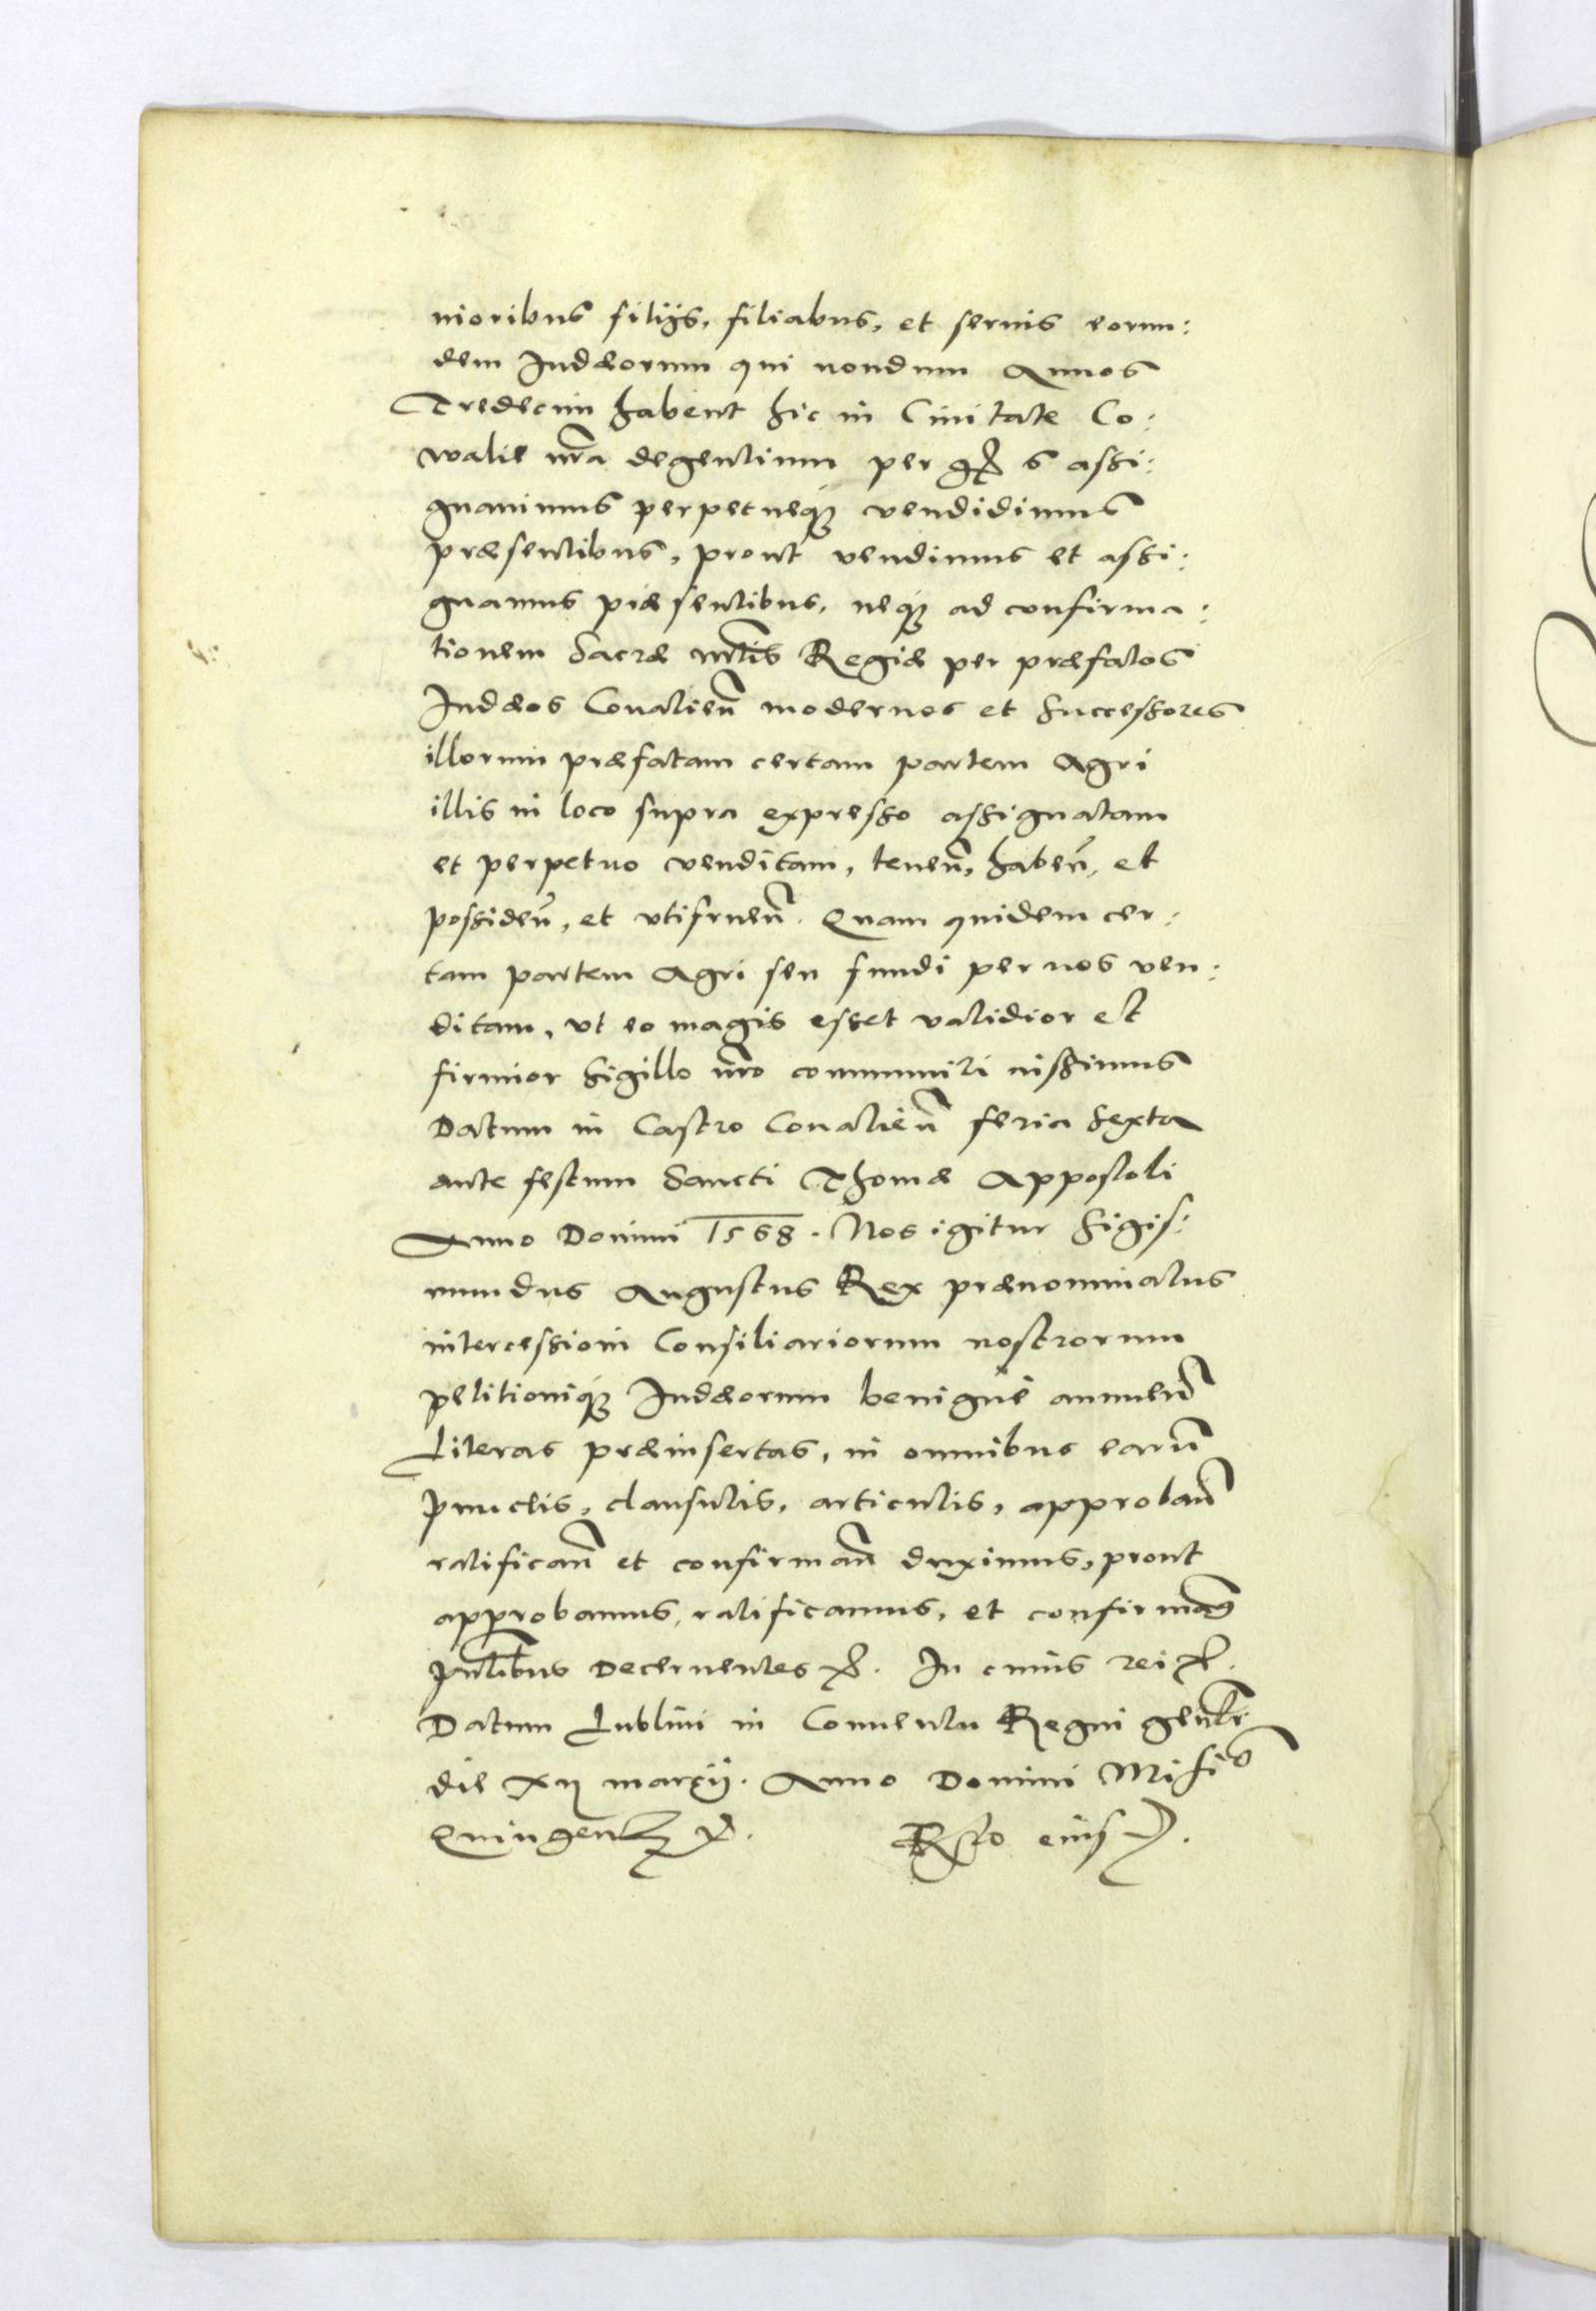 nioribus filijs, filiabus, et seruis eorun:
dem Judæorum qui nondum Annos
Tredecim habent hic in Ciuitate Co:
walie nr̃a degentium per gr̃ 6 assi:
gnauimus perpetueq͗ʒ vendidimus
præsentibus, prout vendimus et assi:
gnamus præsentibus, neq͗ʒ ad confirma:
tionem Sacræ Mt̃is Regiæ per præfatos
Judæos Coualieñ modernos et Successores
illorum præfatam certam partem Agri
illis in loco supra expresso assignatam
et perpetuo venditam, teneñ, habeñ, et
possideñ, et vtifrueñ. Quam quidem cer:
tam partem Agri seu fundi per nos ven:
ditam, vt eo magis esset validior et
firmior Sigillo nr̃o communiri iussimus
Datum in Castro Coualieñ feria Sexta
ante festum Sancti Thomæ Appostoli
Anno Domini 1568. Nos igitur Sigis:
mundus Augustus Rex prænominatus
intercessioni Consiliariorum nostrorum
petitioniq͗ʒ Judæorum benigne annueñ
Literas præinsertas, in omnibus earũ
punctis, clausulis, articulis, approbañ
ratificañ et confirmañ duximus, prout
approbamus, ratificamus, et confirmam̃9
pñtibus Decernentes etc̃. In cuius rei etc̃.
Datum Lublini in Conuentu Regni geñli
die xij marcij. Anno Domini Mil̃lio
Quingentmo etc̃. Rl̃o eius